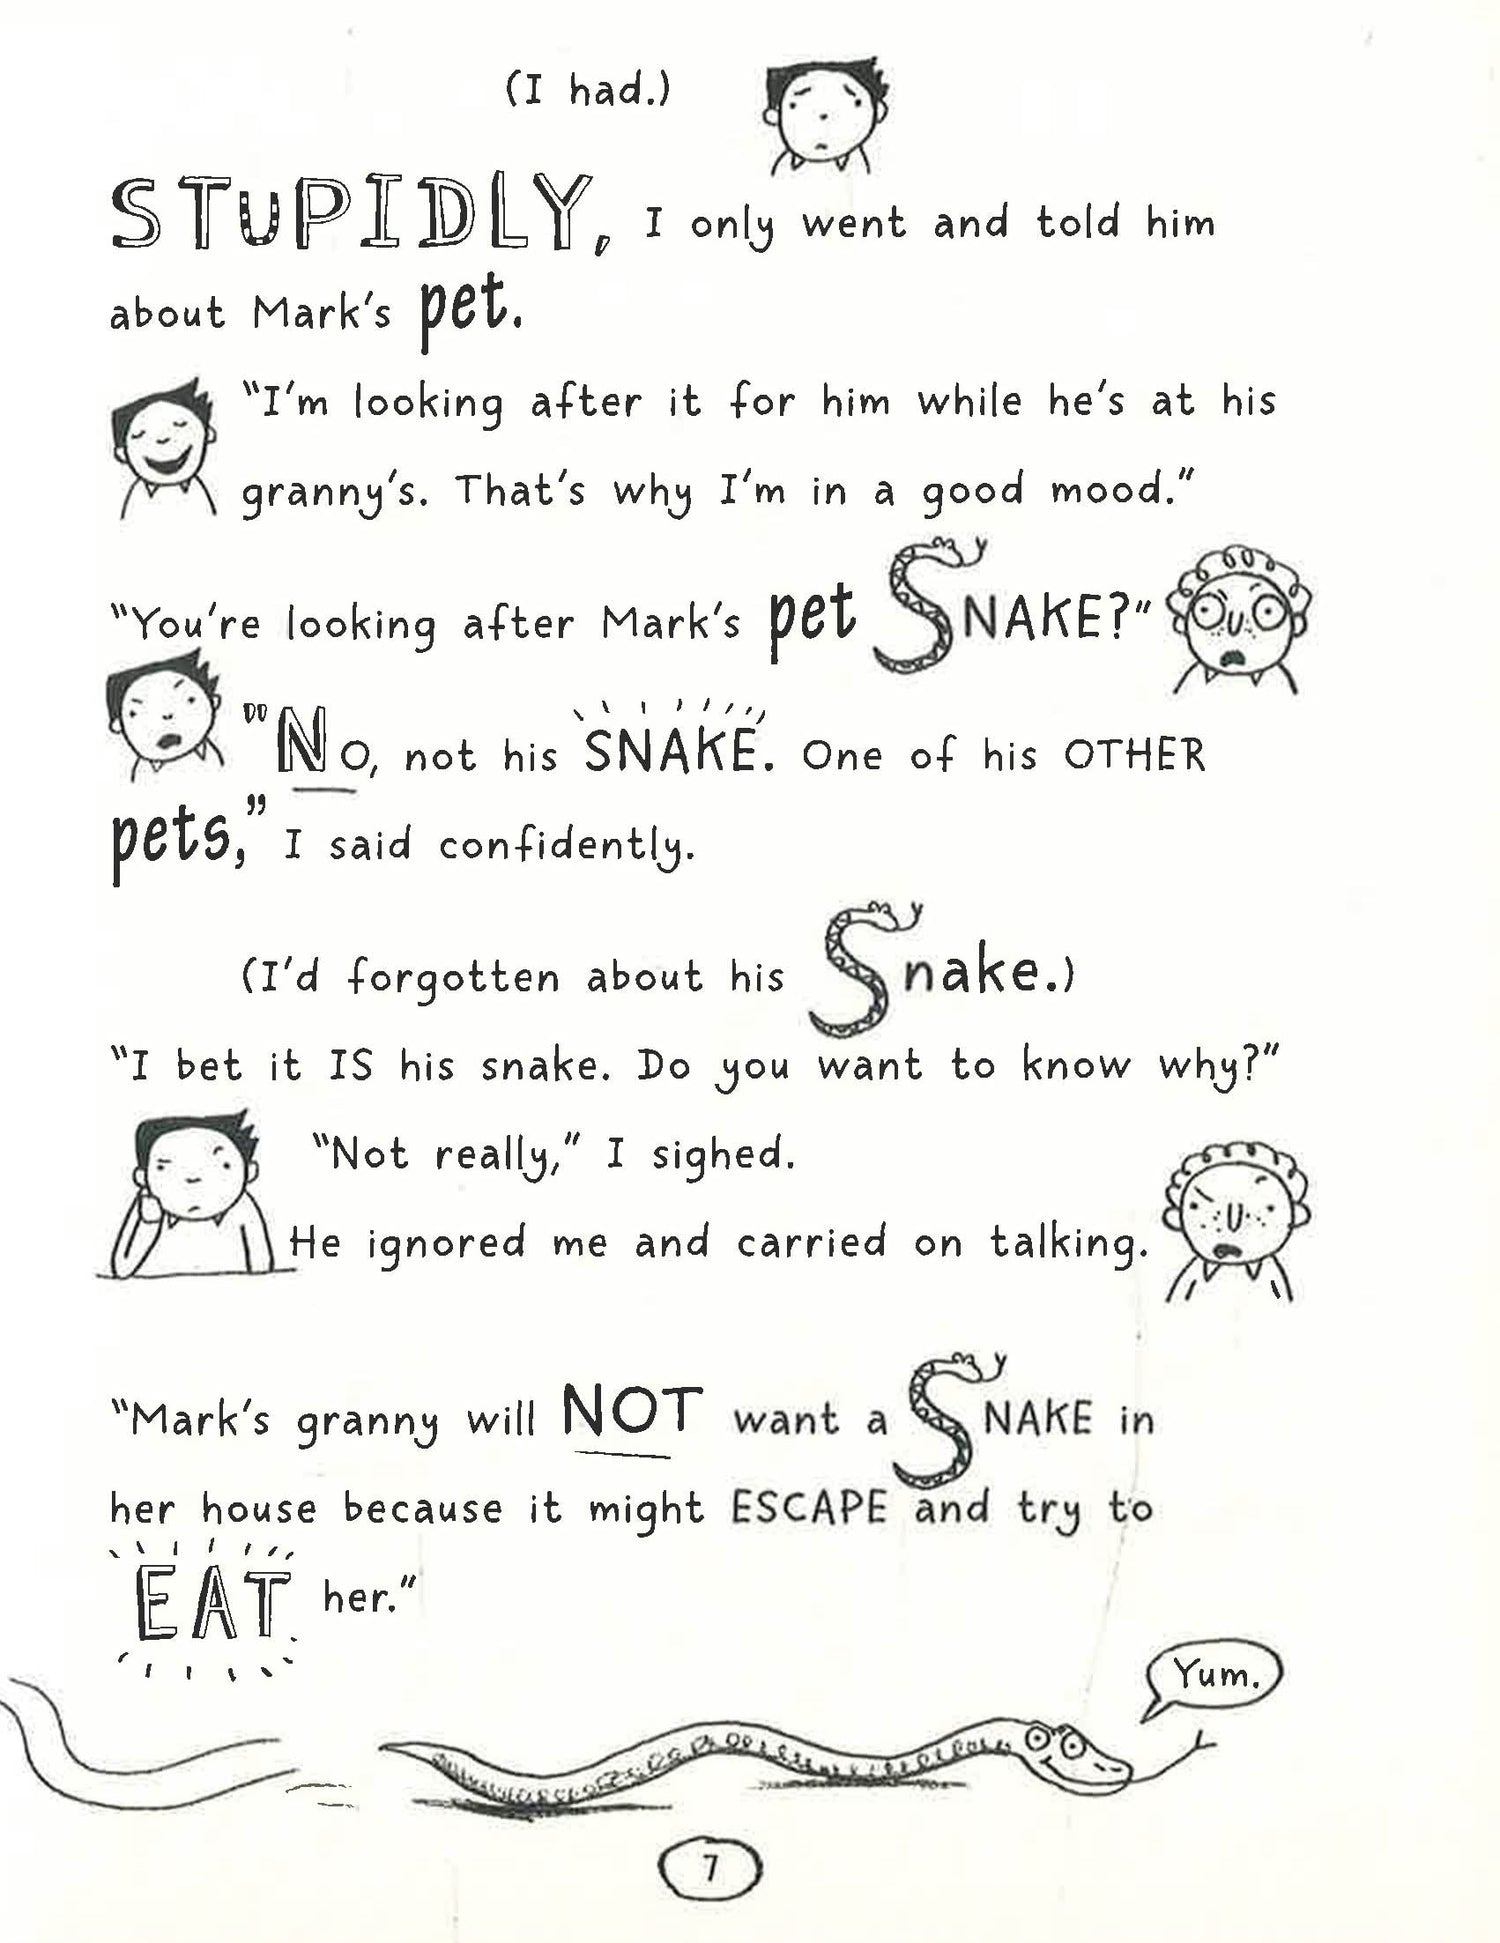 (I had.)
STUPIDLY, I only went and told him
about Mark's pet.
"I'm looking after it for him while he's at his
granny's. That's why I'm in a good mood."
"You're looking after Mark's pet SNAKE?"
"No, not his SNAKE. One of his OTHER
pets," I said confidently.
(I'd forgotten about his Snake.)
"I bet it IS his snake. Do you want to know why?"
"Not really," I sighed.
He ignored me and carried on talking.
"Mark's granny will NOT want a SNAKE in
her house because it might ESCAPE and try to
EAT her."
Yum.
7